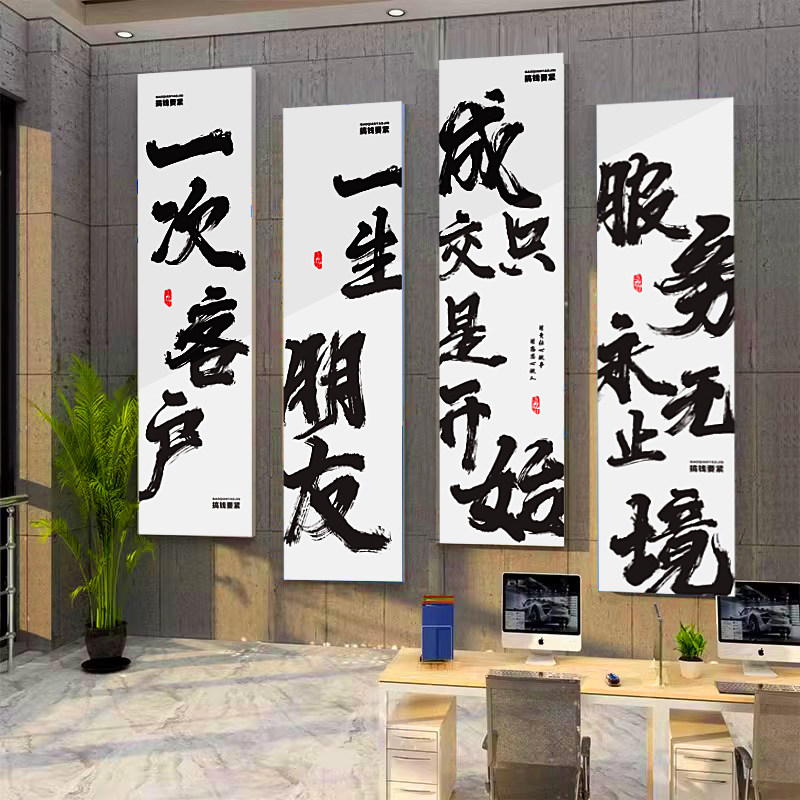 搞钱要紧
一次客户
搞钱要紧
搞钱要紧
一生
朋友
搞钱要紧
成交只是开始
服务永无止境
搞钱要紧